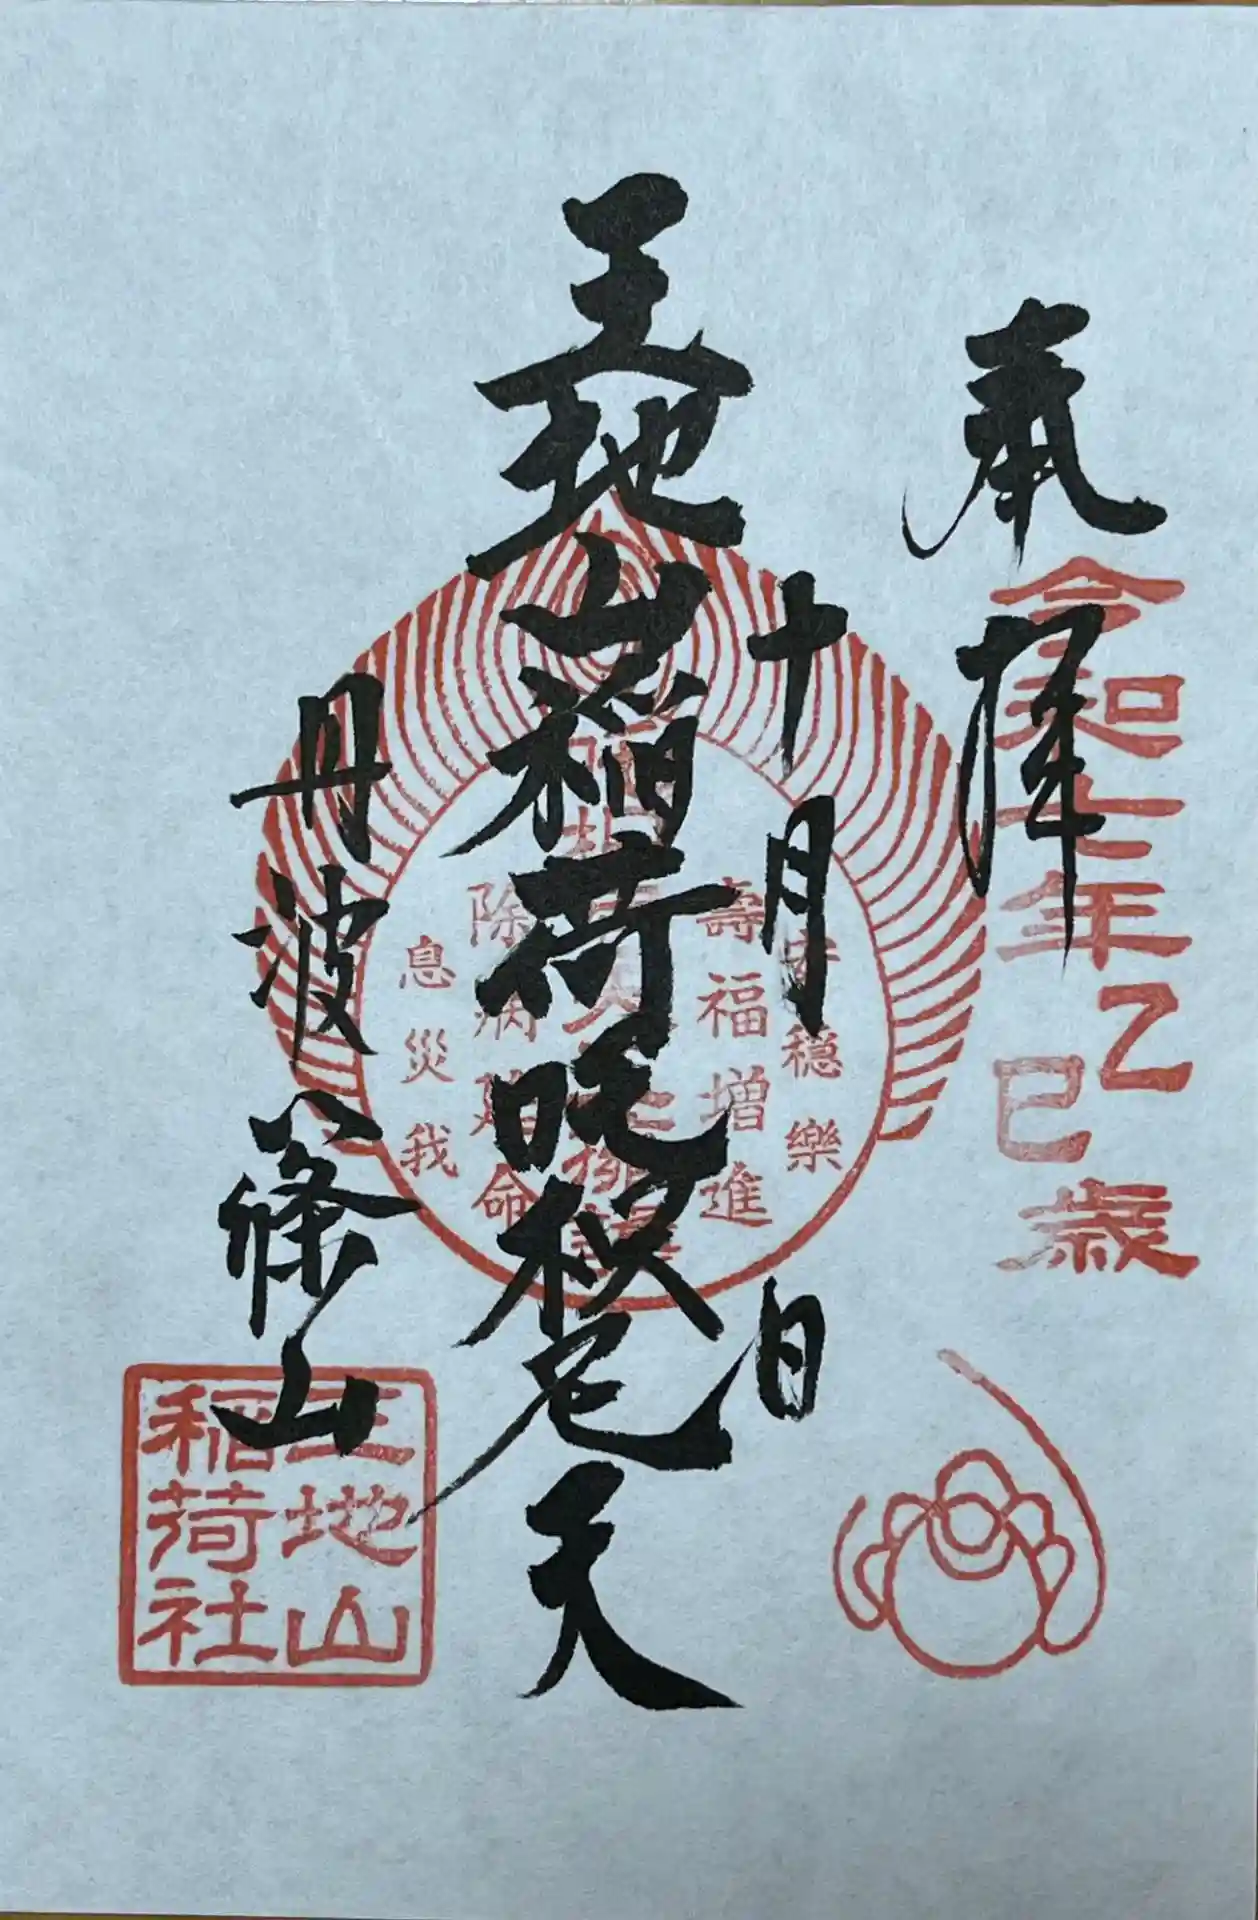 奉拝
令和七年乙巳歳
十月 日
王地山稲荷吒枳尼天
安穏樂
壽福増進
除病延命
息災我
丹波篠山
王地山
稲荷社